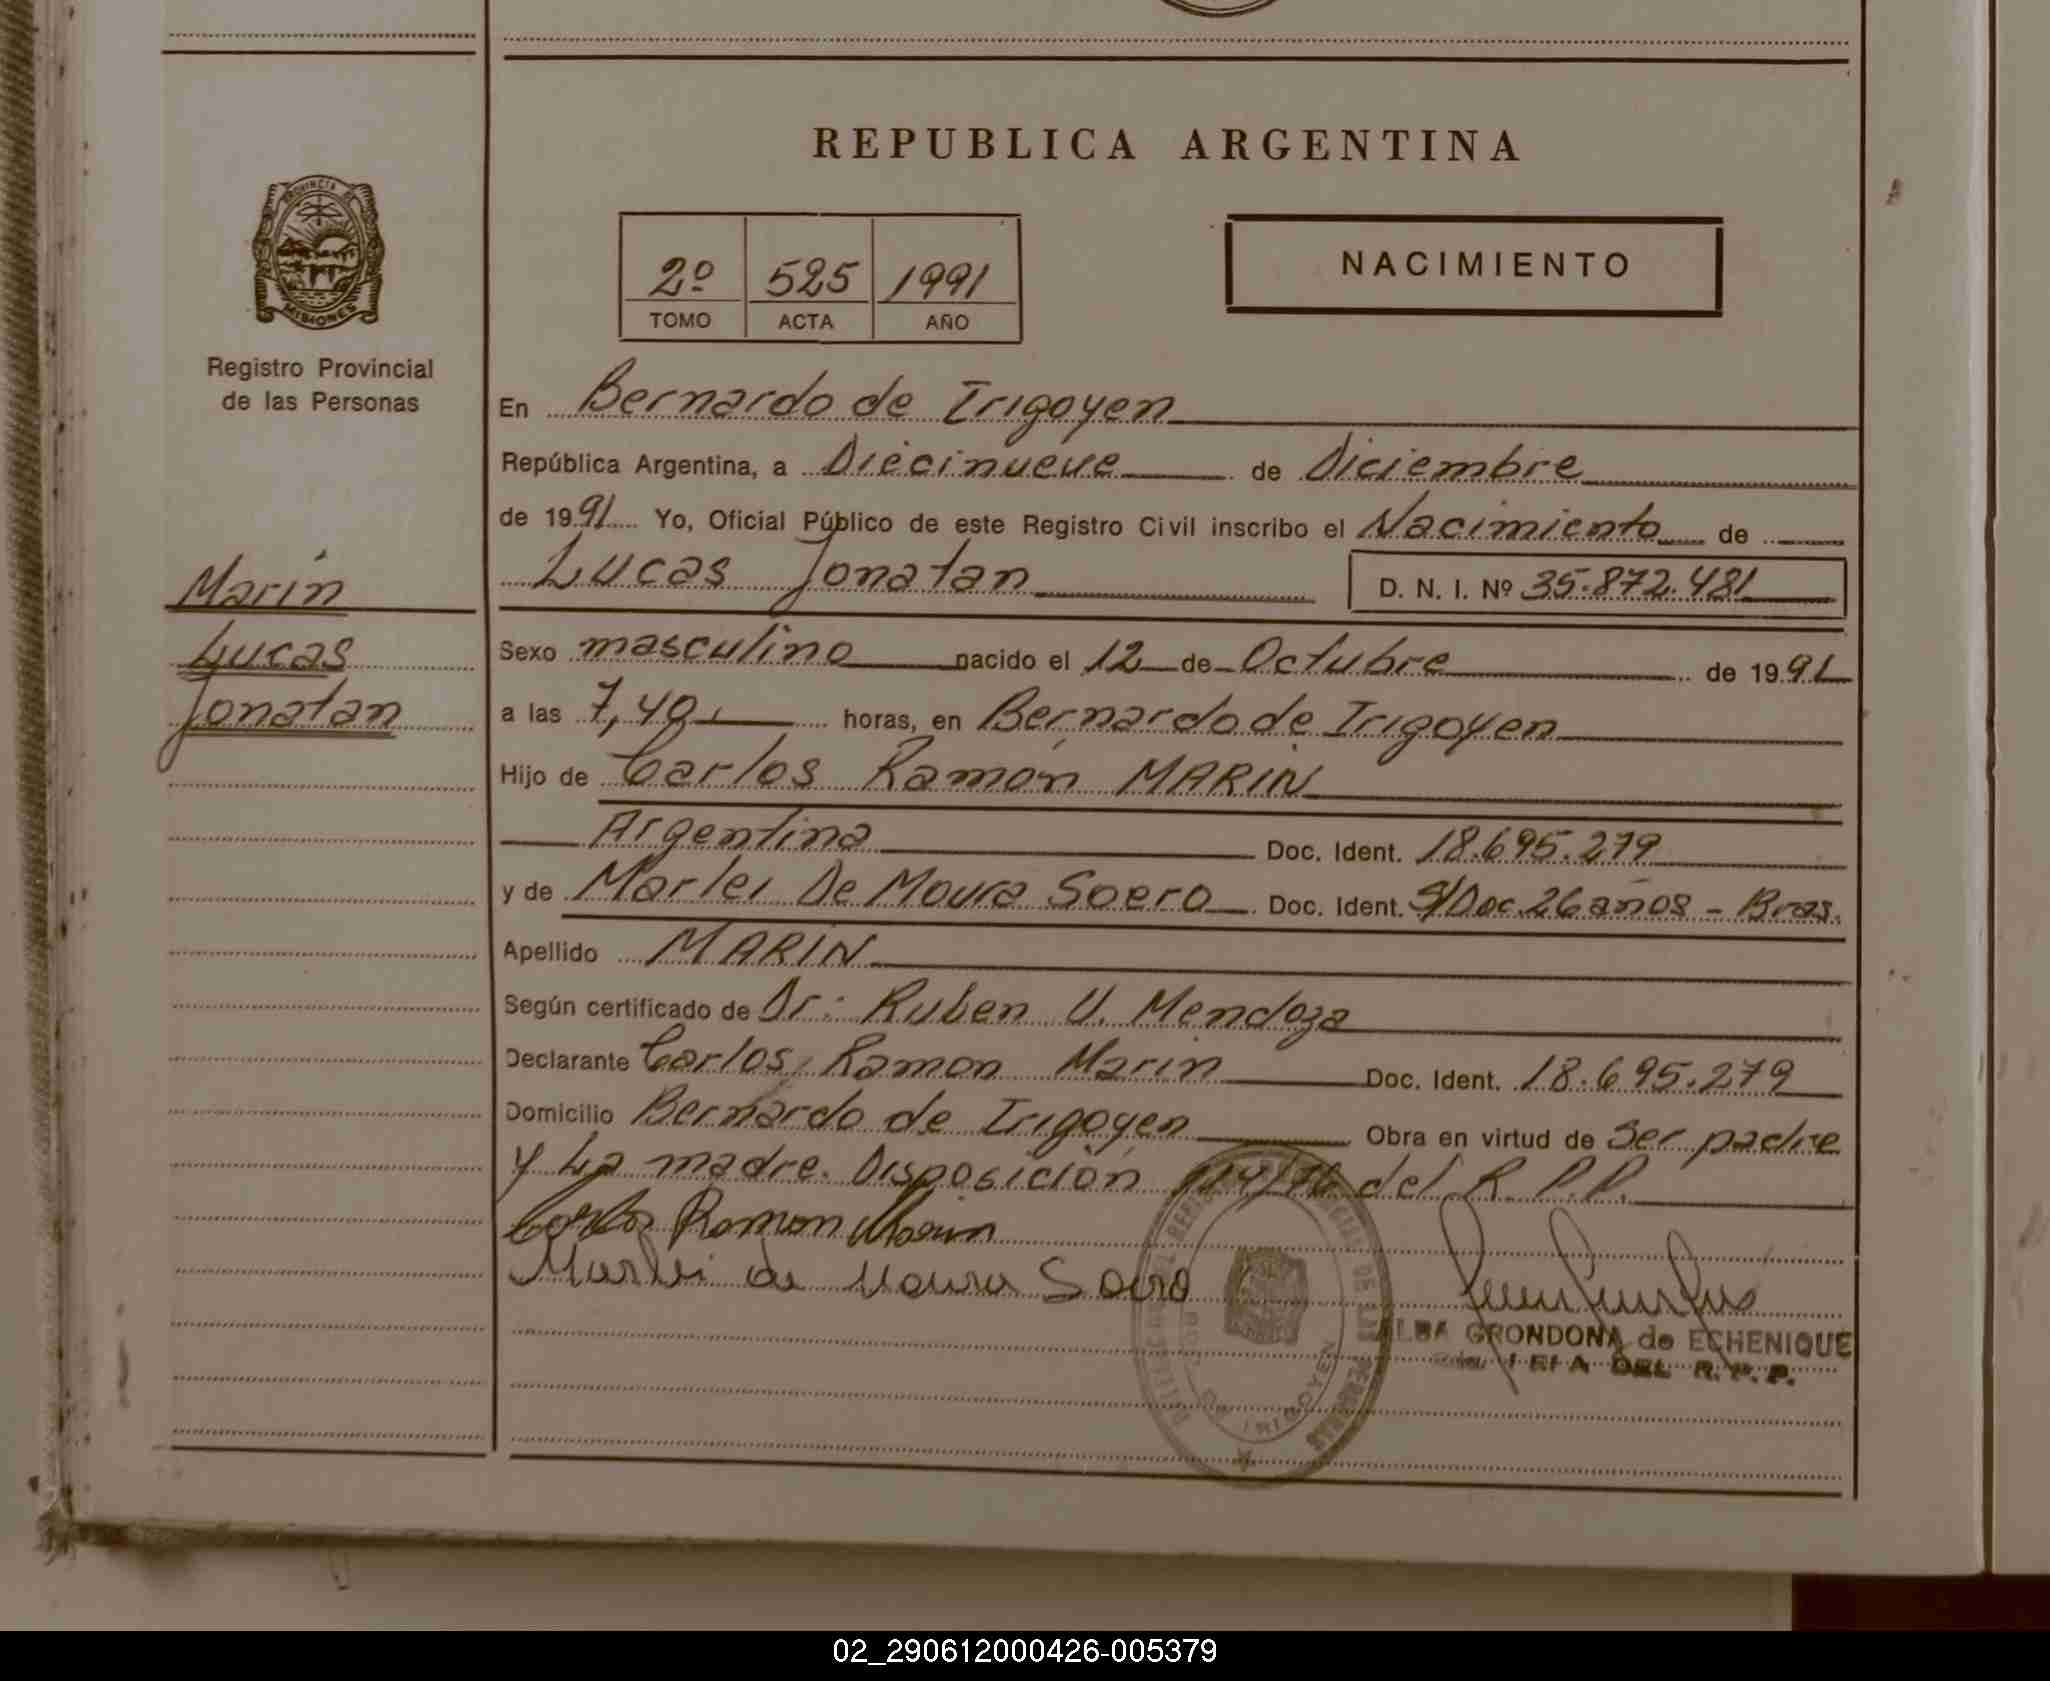 REPUBLICA ARGENTINA
PROVINCIA DE
MISIONES
Registro Provincial
de las Personas
2º 525 1991
TOMO ACTA AÑO
NACIMIENTO
En Bernardo de Irigoyen
República Argentina, a Diecinueve de Diciembre
de 1991 Yo, Oficial Público de este Registro Civil inscribo el Nacimiento de
Lucas Jonatan D. N. I. Nº 35.872.481
Marin
Lucas
Jonatan
Sexo masculino nacido el 12 de Octubre de 1991
a las 7,40 horas, en Bernardo de Irigoyen
Hijo de Carlos Ramón MARIN
Argentina Doc. Ident. 18.695.279
y de Marlei De Moura Soero Doc. Ident. S/Doc. 26 años - Bras.
Apellido MARIN
Según certificado de Dr: Ruben U. Mendoza
Declarante Carlos Ramon Marin Doc. Ident. 18.695.279
Domicilio Bernardo de Irigoyen Obra en virtud de Ser padre
y La madre. Disposición del R. P. P.
Carlos Ramon Marin
Marlei de Moura Soero
ALBA GRONDONA de ECHENIQUE
DEL R. P. P.
DE LAS PERSONAS
DE IRIGOYEN
02_290612000426-005379